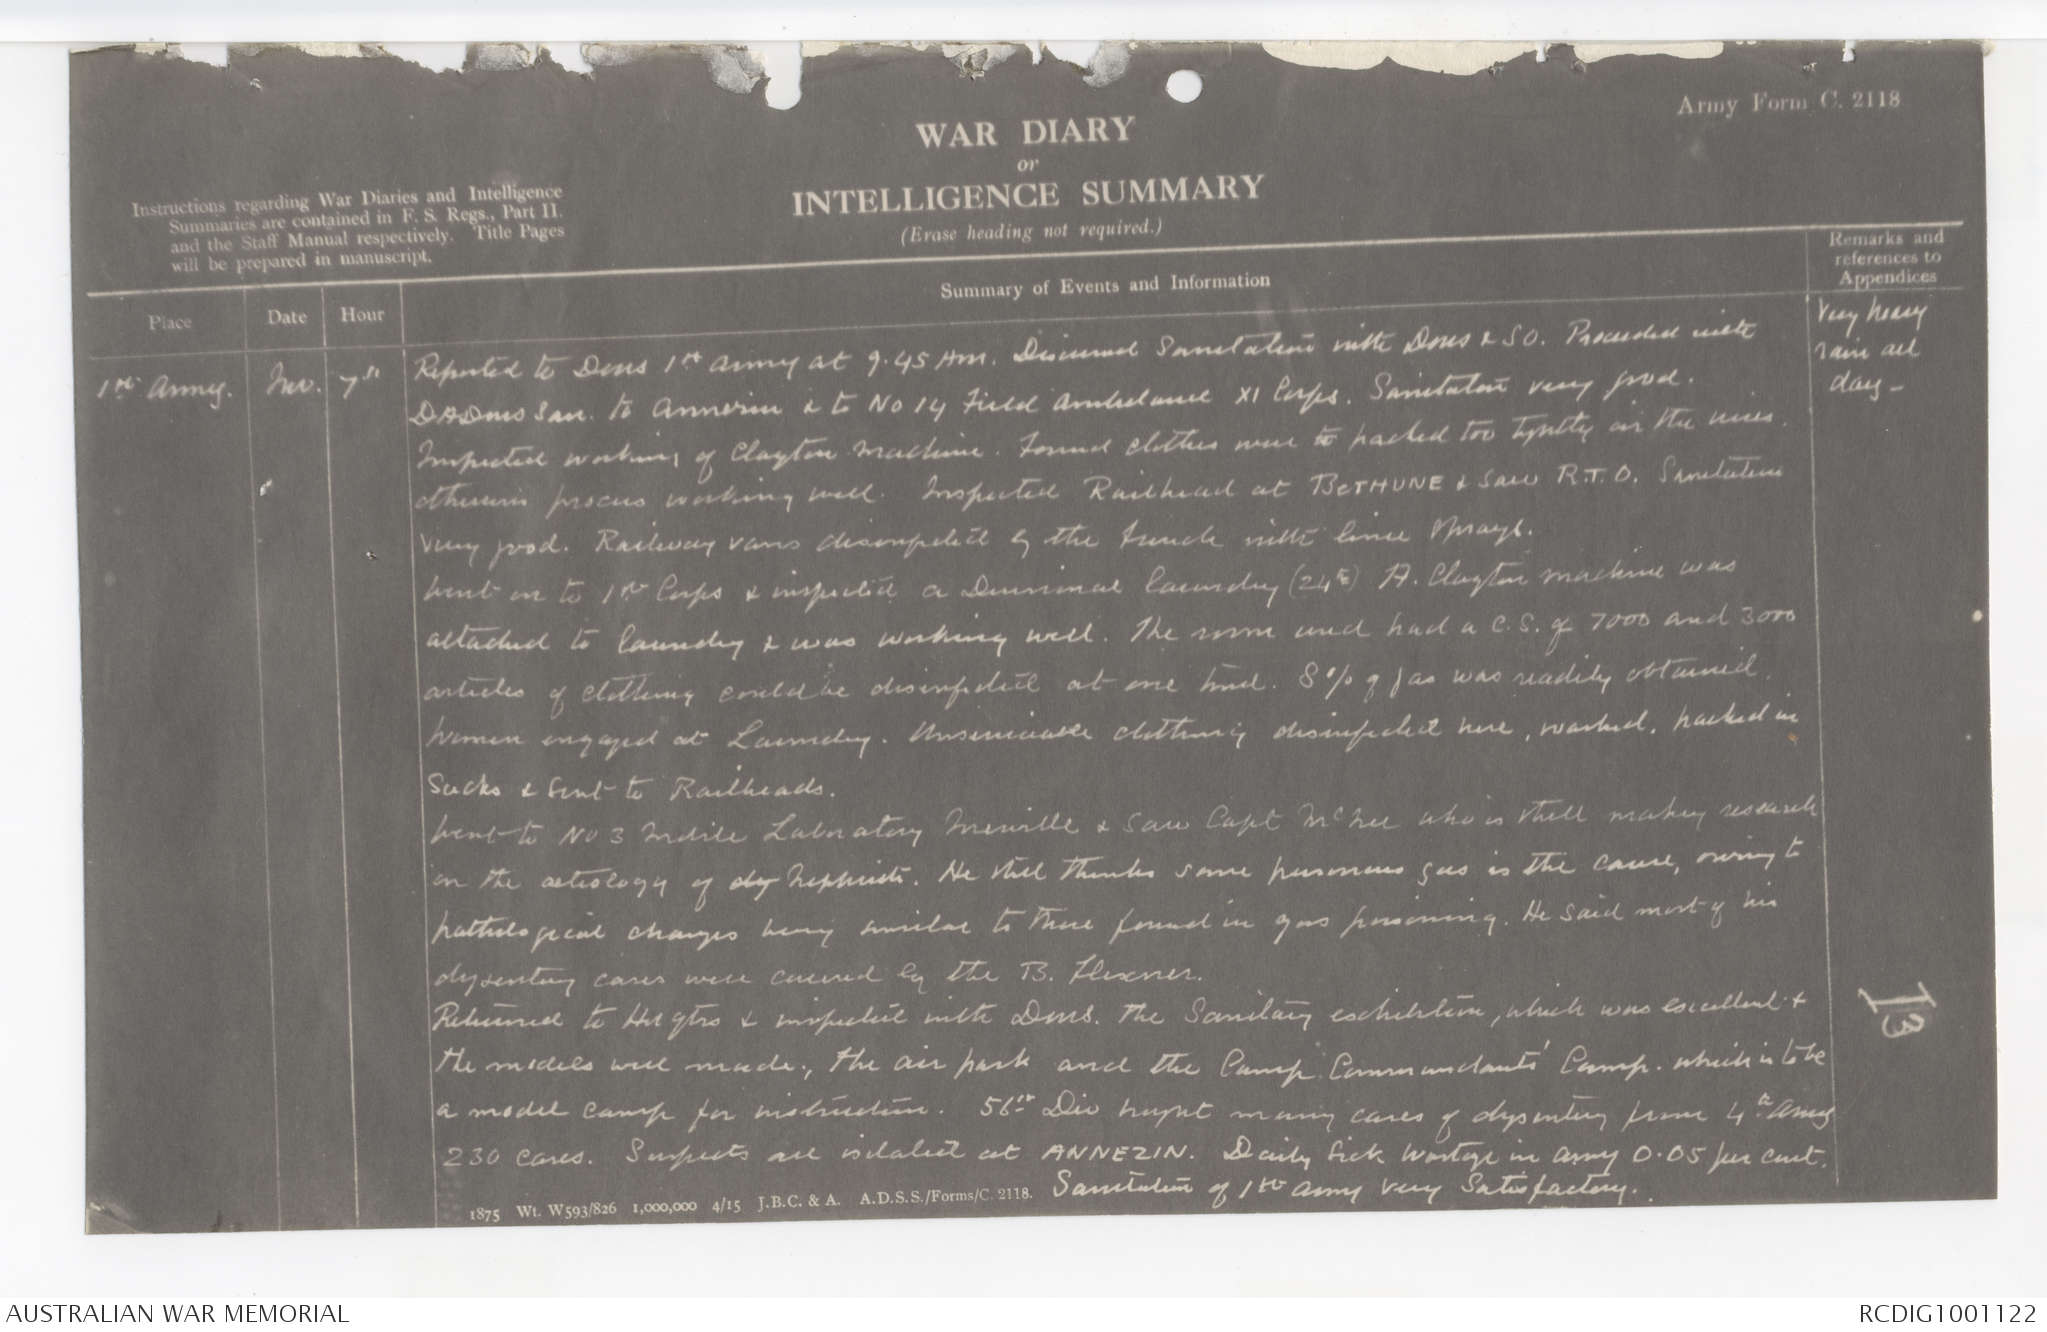 Army Form C. 2118
WAR DIARY
or
INTELLIGENCE SUMMARY
(Erase heading not required.)
Instructions regarding War Diaries and Intelligence
Summaries are contained in F. S. Regs., Part II.
and the Staff Manual respectively. Title Pages
will be prepared in manuscript.
Place
Date
Hour
Summary of Events and Information
Remarks and
references to
Appendices
1st Army.
Nov.
7th
Reported to DMS 1st Army at 9.45 AM. Discussed Sanitation with DMS & SO. Proceeded with
DADMS San. to Annezin & to No 14 Field Ambulance XI Corps. Sanitation very good.
Inspected working of Clayton Machine. Found clothes were to packed too tightly in the
otherwise process working well. Inspected Railhead at BETHUNE & saw R.T.O. Sanitation
very good. Railway vans disinfected by the French with lime sprays.
Went on to 1st Corps & inspected a Divisional laundry (24th) A. Clayton machine was
attached to laundry & was working well. The room used had a C.S. of 7000 and 3000
articles of clothing could be disinfected at one time. 8% of gas was readily obtained.
Women engaged at Laundry. Unserviceable clothing disinfected here, washed, packed in
Sacks & sent to Railheads.
Went to No 3 Mobile Laboratory Merville & saw Capt McNee who is still making research
on the aetiology of dy Nephritis. He still thinks some poisonous gas is the cause, owing to
pathological changes being similar to those found in gas poisoning. He said most of his
dysentery cases were caused by the B. Flexner.
Returned to Hdqtrs & inspected with DMS. the Sanitary exhibition, which was excellent &
the models well made, the air park and the Camp Commandants' Camp. which is to be
a model camp for instruction. 56th Div brought many cases of dysentery from 4th Army
230 cases. Suspects are isolated at ANNEZIN. Daily Sick Wastage in army 0.05 per cent.
Sanitation of 1st Army very Satisfactory.
Very heavy
rain all
day -
13
1875 Wt. W593/826 1,000,000 4/15 J.B.C. & A. A.D.S.S./Forms/C. 2118.
AUSTRALIAN WAR MEMORIAL
RCDIG1001122